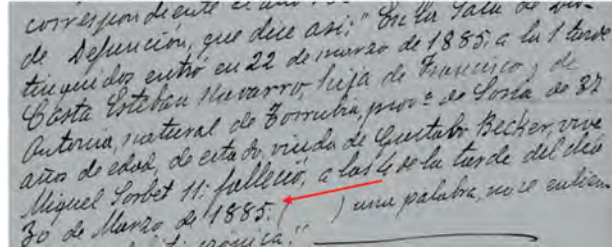 correspondiente el año
de Defunción, que dice asi: " En la Sala de Dis-
tinguidos entró en 22 de marzo de 1885, a la 1 tarde
Casta Esteban Navarro, hija de Francisco y de
Antonia, natural de Torrubia, provª de Soria de 37
años de edad, de estado, viuda de Gustabo Becker, vive
Miguel Sorbet 11: falleció, a las 4 de la tarde del dia
30 de Marzo de 1885. ( ) una palabra, no se entien
cronica."